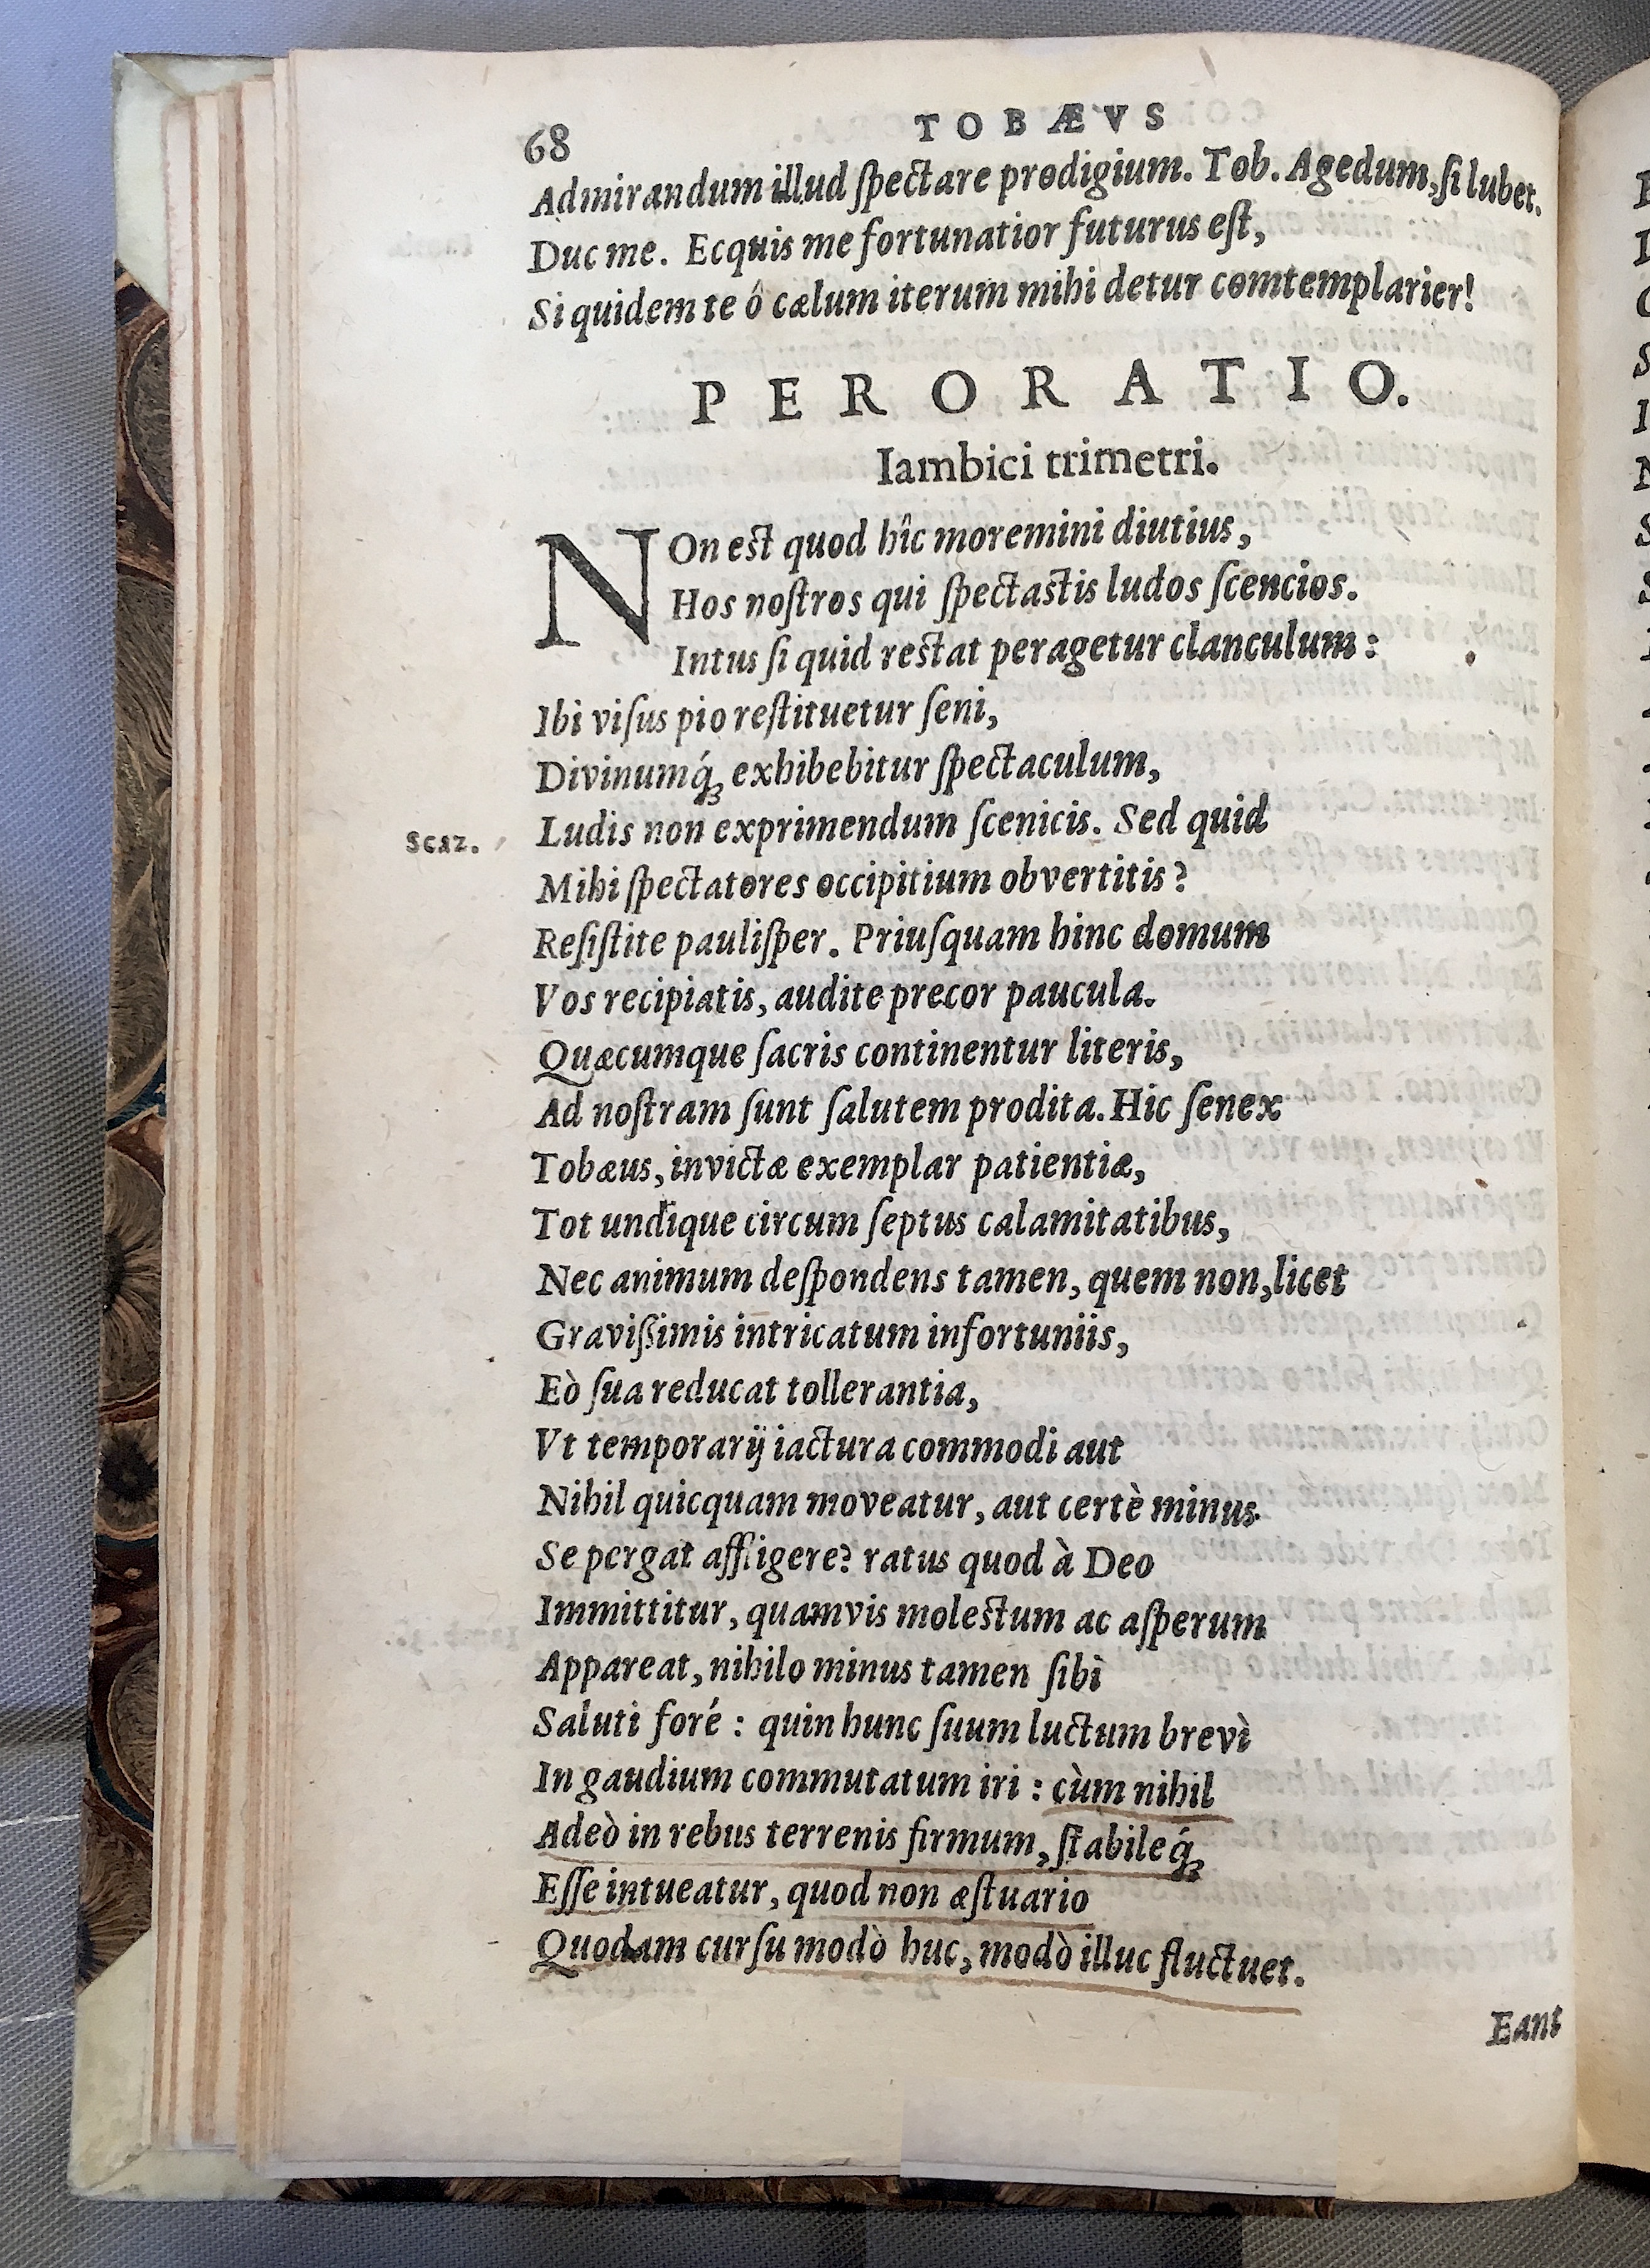 68 TOBÆVS
Admirandum illud ſpectare prodigium. Tob. Agedum, ſi lubet.
Duc me. Ecquis me fortunatior futurus eſt,
Si quidem te ô cælum iterum mihi detur comtemplarier!
PERORATIO.
Iambici trimetri.
NOn est quod hîc moremini diutius,
Hos noſtros qui ſpectastis ludos ſcencios.
Intus ſi quid restat peragetur clanculum:
Ibi viſus pio reſtituetur ſeni,
Divinumq́ꝫ exhibebitur ſpectaculum,
Scaz. Ludis non exprimendum ſcenicis. Sed quid
Mihi ſpectatores occipitium obvertitis?
Reſiſtite pauliſper. Priuſquam hinc domum
Vos recipiatis, audite precor paucula.
Quæcumque ſacris continentur literis,
Ad noſtram ſunt ſalutem prodita. Hic ſenex
Tobæus, invictæ exemplar patientiæ,
Tot undique circum ſeptus calamitatibus,
Nec animum deſpondens tamen, quem non, licet
Graviſſimis intricatum infortuniis,
Eò ſua reducat tollerantia,
Vt temporarij iactura commodi aut
Nihil quicquam moveatur, aut certè minus
Se pergat affligere? ratus quod à Deo
Immittitur, quamvis molestum ac aſperum
Appareat, nihilo minus tamen ſibì
Saluti foré : quin hunc ſuum luctum brevì
In gaudium commutatum iri : cùm nihil
Adeò in rebus terrenis firmum, ſtabileq́ꝫ
Eſſe intueatur, quod non æſtuario
Quodam curſu modò huc, modò illuc fluctuet.
Eant